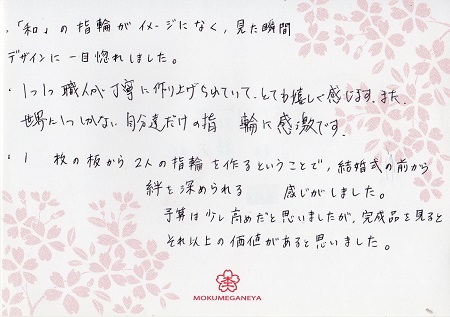 ・「和」の指輪がイメージになく、見た瞬間
デザインに一目惚れしました。
・1つ1つ職人が丁寧に作り上げられていて、とても嬉しく感じます。また、
世界に1つしかない自分達だけの指 輪に感激です。
・1 枚の板から2人の指輪を作るということで、結婚式の前から
絆を深められる 感じがしました。
予算は少し高めだと思いましたが、完成品を見ると
それ以上の価値があると思いました。
MOKUMEGANEYA